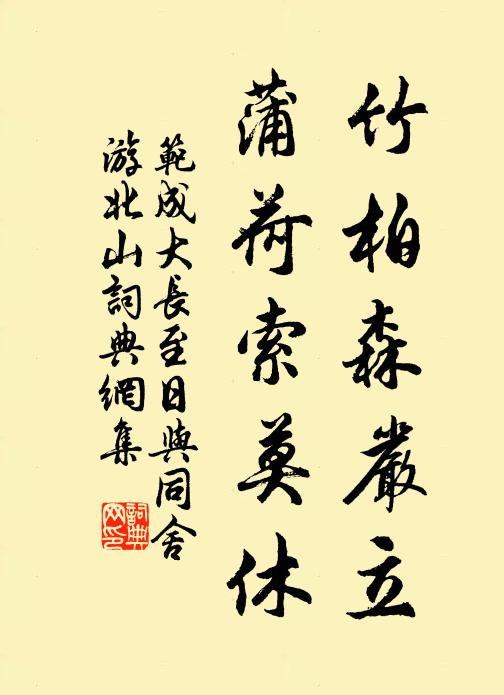 竹柏森嚴立
蒲荷索莫休
範成大長至日與同舍
游北山詞典網集
詞典网印